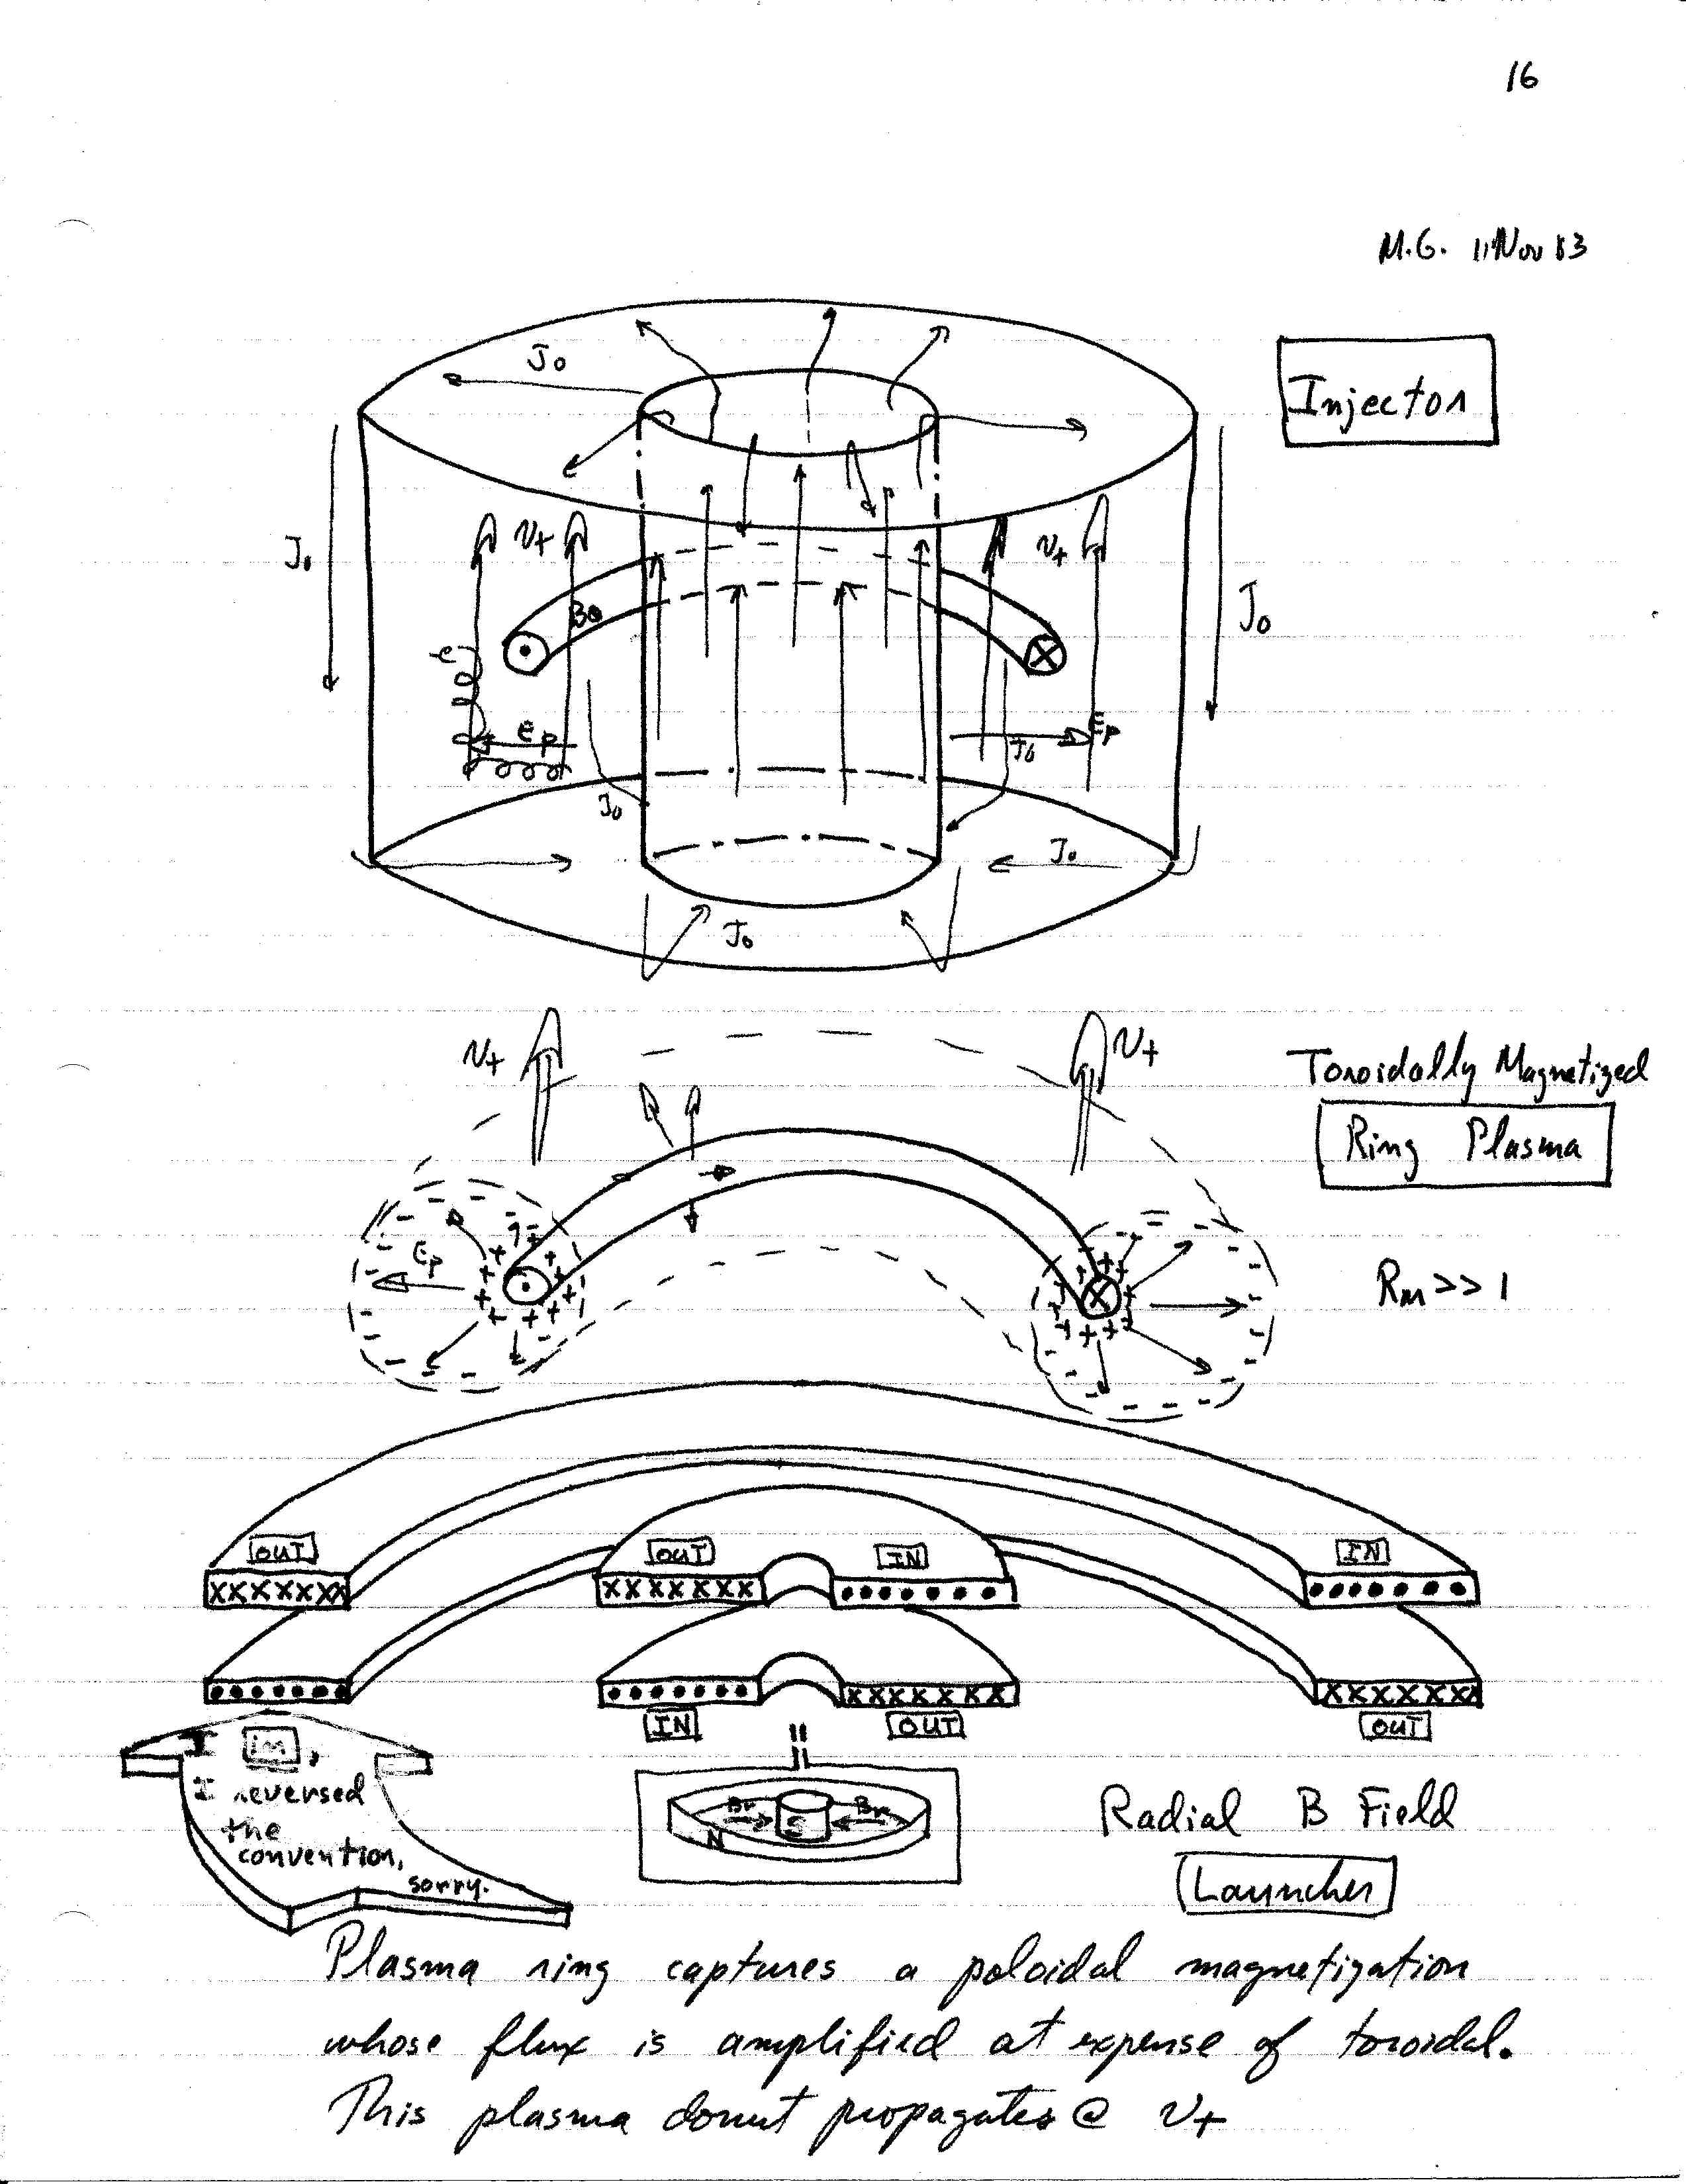 16
M.G. 11 Nov 83
Injector
J₀
J₀
J₀
v+
v+
Bθ
e
Ep
Ep
J₀
J₀
J₀
J₀
v+
v+
Toroidally Magnetized
Ring Plasma
Ep
Rm >> 1
OUT
OUT
IN
IN
XXXXXXX
XXXXXXX
XXXXXXX
XXXXXXX
IN
OUT
OUT
im,
I reversed
the
convention,
sorry.
Br
Br
N
S
Radial B Field
Launcher
Plasma ring captures a poloidal magnetization
whose flux is amplified at expense of toroidal.
This plasma donut propagates @ v+